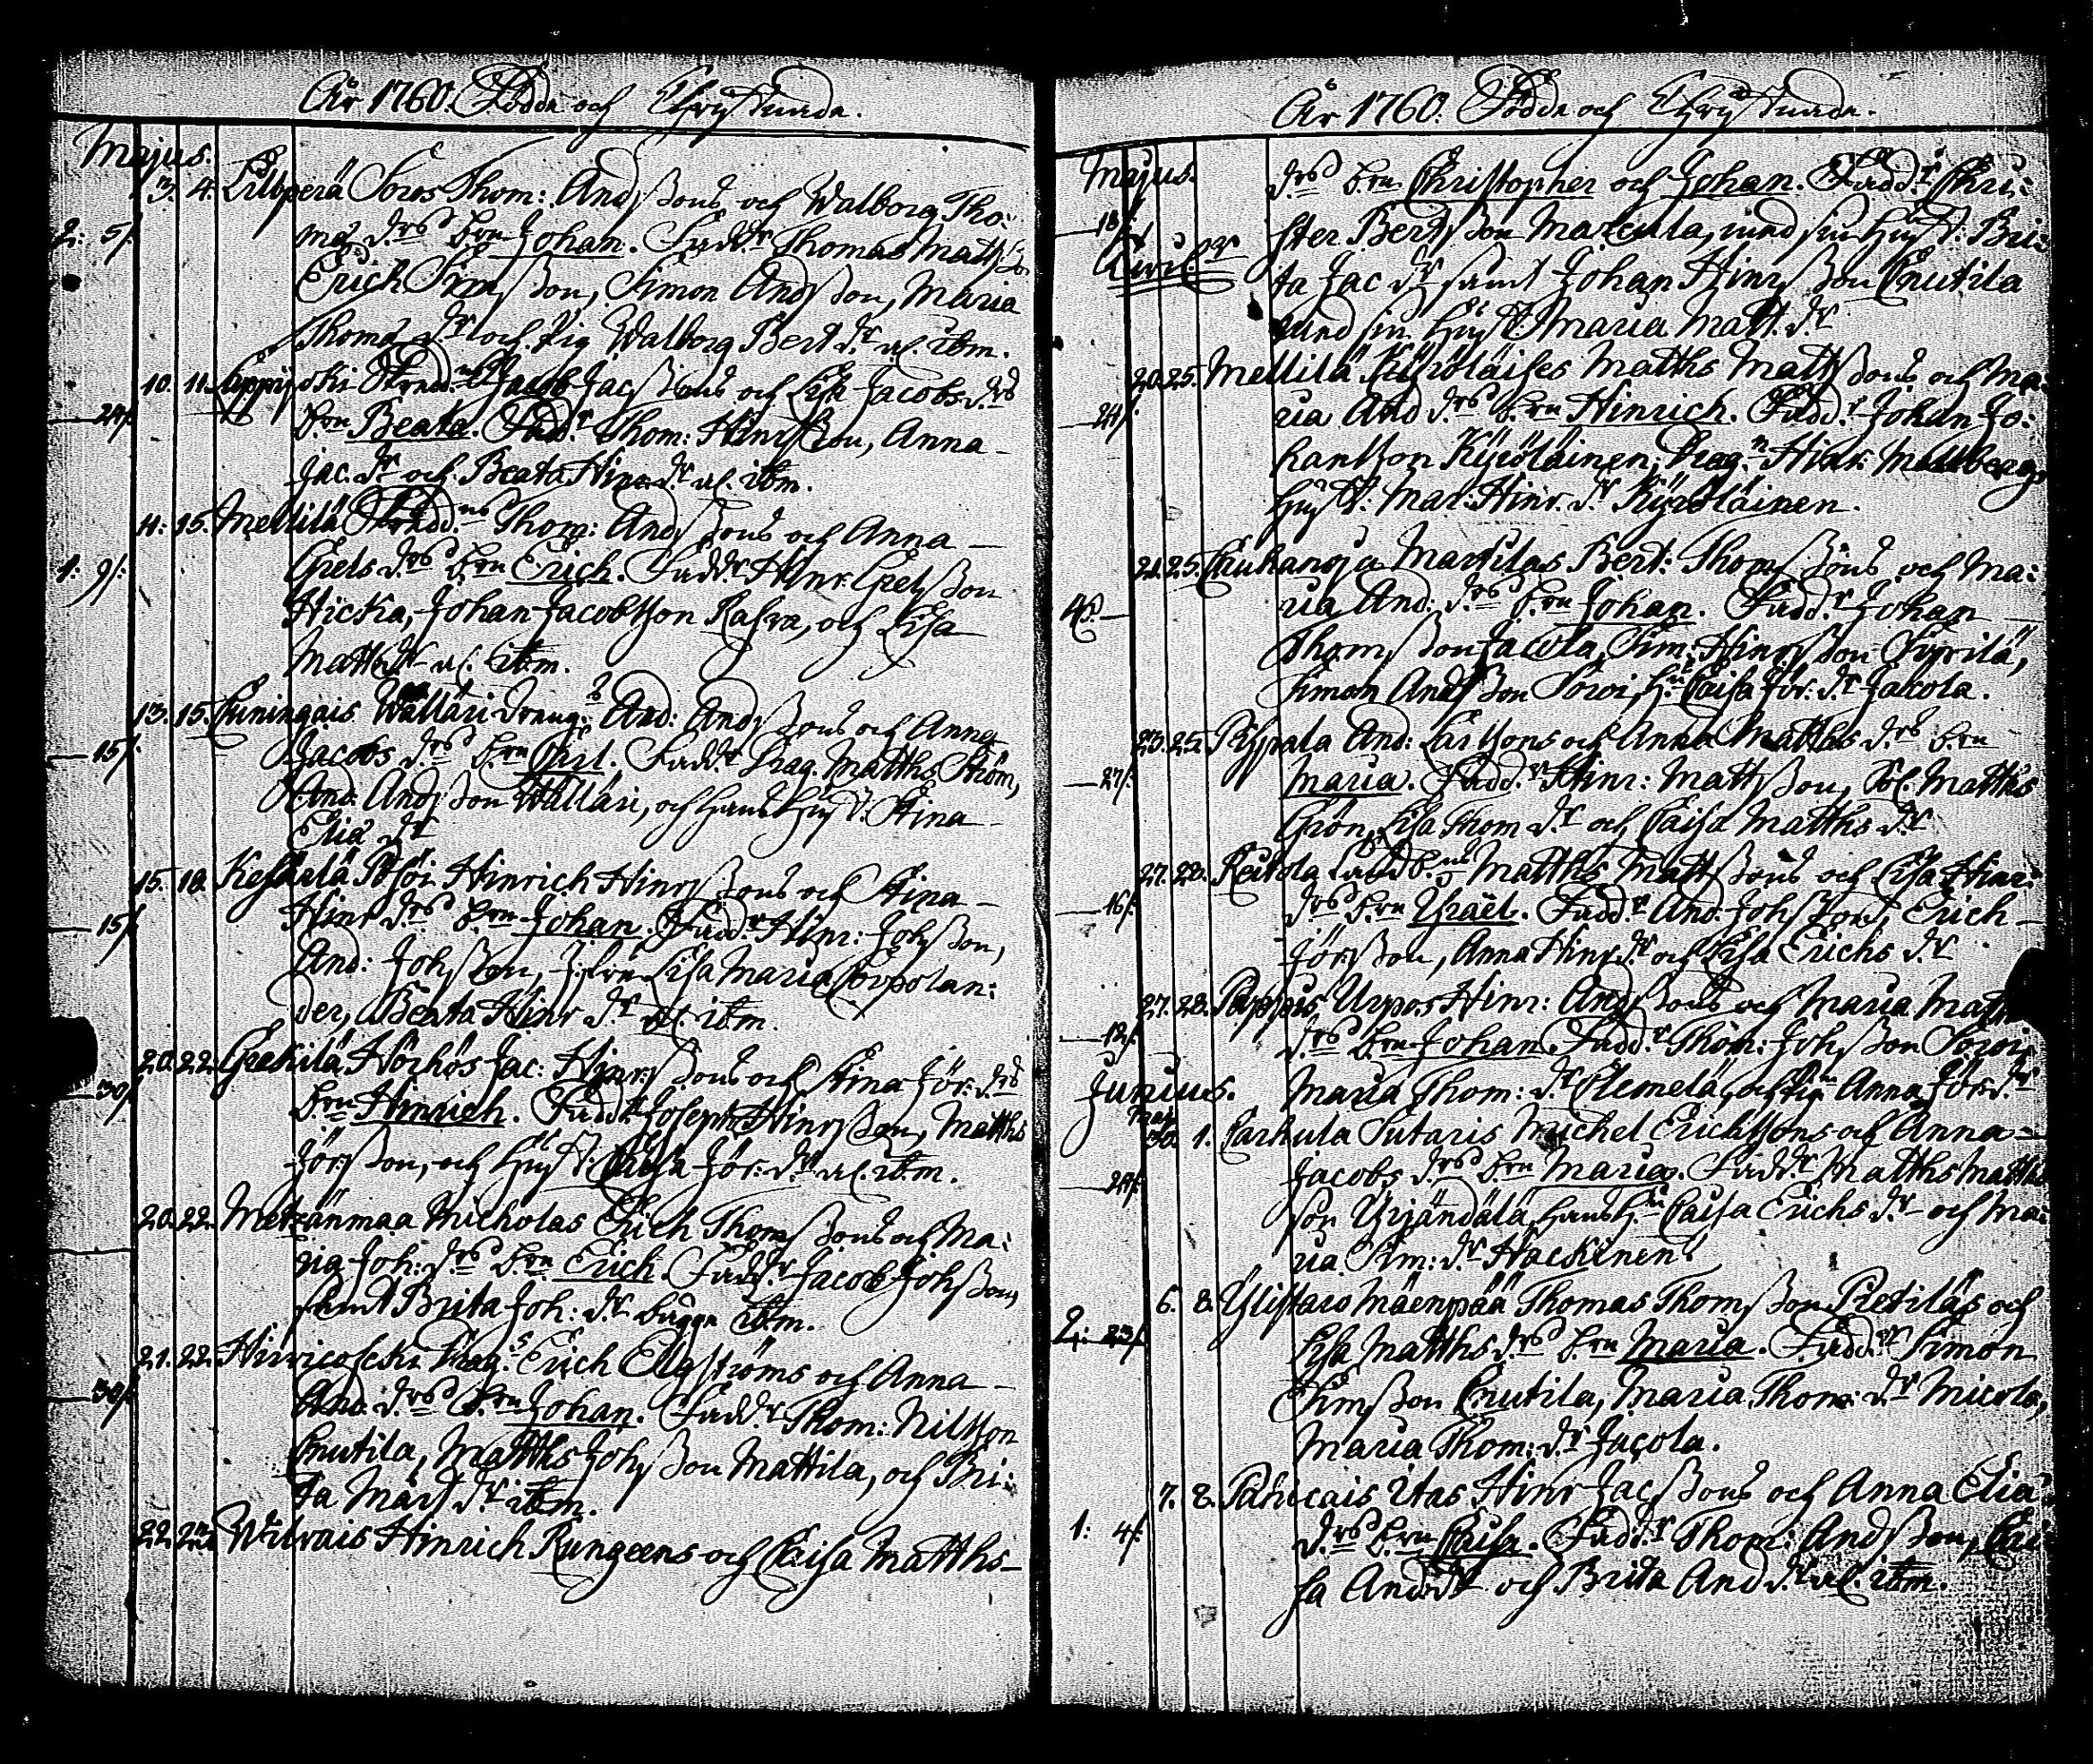 År 1760. Födde och Christnade.
Majus.
3. 4. Lilperä Thom: Andssons och Walborg Tho:
2: 5/. mæ drs b:rn Johan. Fadd:r Thomas Mattss:
Erich Simsson, Simon Andsson, Maria
Thomæ d:r och Pig Walborg Bert d:r al. ibm.
10. 11. Jacob Jacssons och Lisa Jacobs drs
24/. b:rn Beata. Fadd:r Thom: Hinrsson, Anna
Jac. d:r och Beata Hinr d:r al. ibm.
11. 15. Mellilä Thom: Andssons och Anna
1: 9/. Grels drs b:rn Erich. Fadd:r Hinr: Grelsson
Hicka, Johan Jacobsson Rahva, och Lisa
Matts d:r al. ibm.
13. 15. Kuningais Wälläri dreng:s And: Andssons och Anna
15/. Jacobs drs b:rn Carl. Fadd:r Drag. Matths Ström,
And: Andsson Wälläri, och hans Hust: Stina
Eliæ d:r
15. 18. Hinrich Hinrssons och Stina
15/. Hinr drs b:rn Johan. Fadd:r Hinr: Johsson,
And: Johsson, Lisa Maria Corpolan:
der, Beata Hinr d:r al. ibm.
20. 22. Grekilä Hörhös Jac: Hinrssons och Stina Jör: drs
30/. b:rn Hinrich. Fadd:r Joseph Hinrsson, Matths
Jörsson, och Hust: Caisa Jör: d:r al. ibm.
20. 22. Metzänmaa Nicholas Erich Thomssons och Ma:
ria Joh: drs b:rn Erich. Fadd:r Jacob Johsson,
samt Brita Joh: d:r ibm.
21. 22. Hirvicoscki Drag:s Erich Elgströms och Anna
30/. And: drs b:rn Johan. Fadd:r Thom: Nilsson
Cnutila, Matths Johsson Mattila, och Bri:
ta Mårt d:r ibm.
22. Wilvais Hinrich Rungeens och Caisa Matths
År 1760. Födde och Christnade.
Majus.
drs b:rn Christopher och Johan. Fadd:r Chri:
18/. ster Bertsson Marcula, med sin Hust: Bri:
ta Jac d:r samt Johan Hinrsson Cnutila
med sin Hust: Maria Matt. d:r
20. 25. Mellilä Kyröläises Matths Mattssons och Ma:
24/. ria And drs b:rn Hinrich. Fadd:r Johan Jo:
hansson Kyröläinen, Drag:n Hinr: Mellberg,
Hust: Mar: Hinr. d:r Kyröläinen.
21. 25. Bert: Thomssons och Ma:
ria And. drs b:rn Johan. Fadd:r Johan
Thomsson Jacola, Sim: Hinrsson Syrilä,
Simon Andsson Sorvi, H:u Caisa Jör: d:r Jacola.
23. 25. And: Carlssons och Anna Matths drs b:rn
27/. Maria. Fadd:r Hinr: Mattsson, Sol. Matths
Grön, Lisa Thom d:r och Caisa Matths d:r
27. 28. Matths Mattssons och Lisa Hinr:
16/. drs b:rn Israël. Fadd:r And: Johsson, Erich
Jörsson, Anna Hinr d:r och Lisa Erichs d:r
27. 28. Pappus, Urpos Hinr: Andssons och Maria Matths
12/. drs b:rn Johan. Fadd:r Thom: Johsson Sorvi,
Junius. Maria Thom: d:r Clemelä, och Pig:n Anna Jör: d:r
Maj 30. 1. Karhula Sutaris Michel Erichssons och Anna
24/. Jacobs drs b:rn Maria. Fadd:r Matths Matths
son Yrjändälä, hans H:u Caisa Erichs d:r och Ma:
ria Sim: d:r Hackinen.
6. 8. Ylistaro Mäenpää Thomas Thomsson Pietiläs och
2: 23/. Lisa Matths drs b:rn Maria. Fadd:r Simon
Simsson Cnutila, Maria Thom: d:r Micola,
Maria Thom: d:r Jacola.
7. 8. Pahicais Itas Hinr Jacssons och Anna Eliæ
1: 4/. drs b:rn Caisa. Fadd:r Thom: Andsson, Cai:
sa And d:r och Brita And d:r al. ibm.